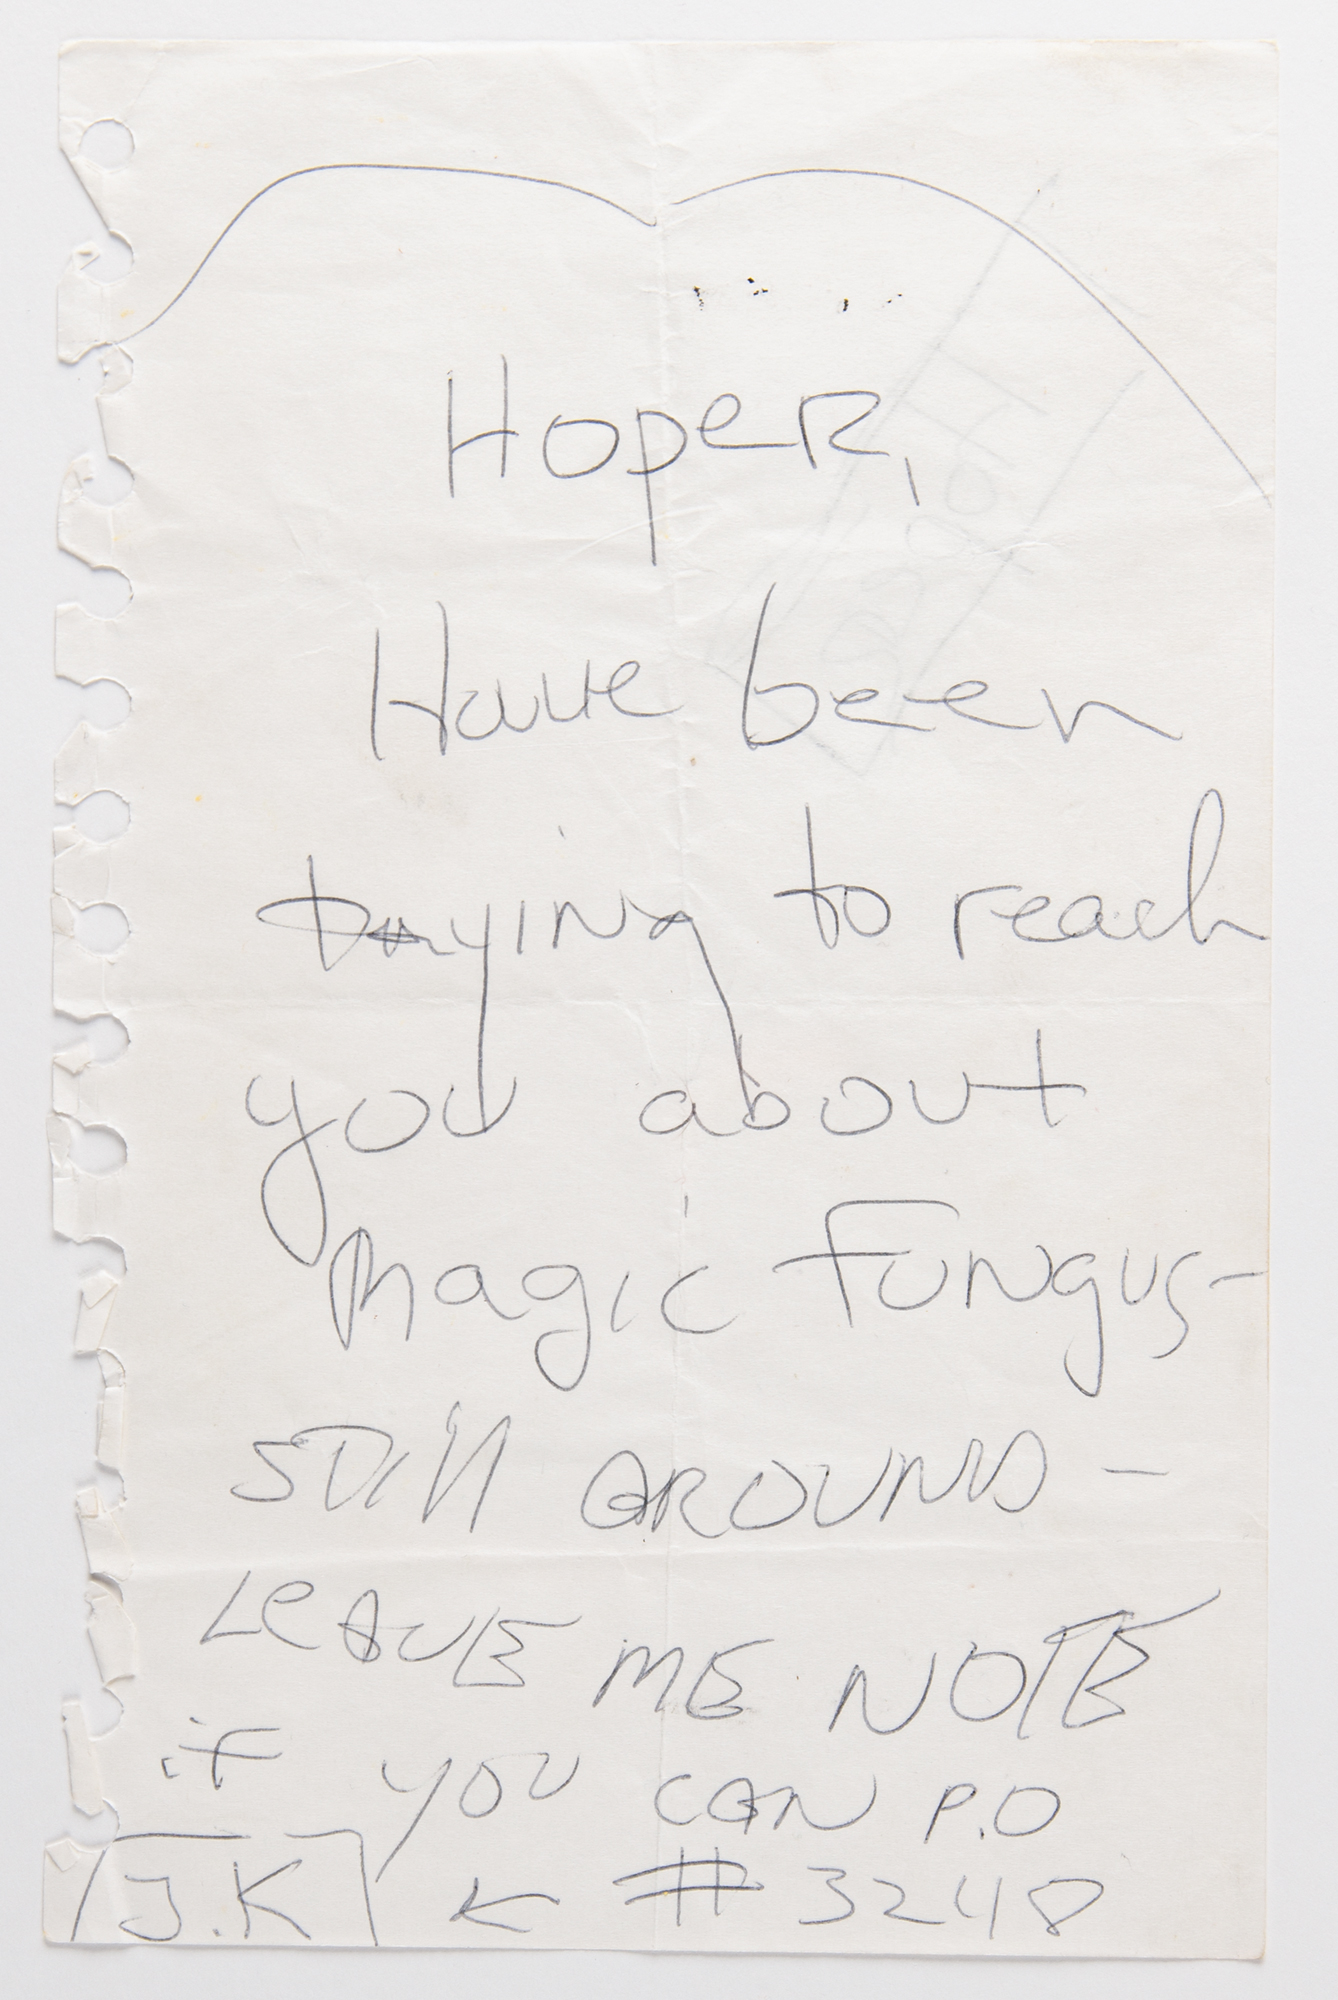 Hoper,
Have been
trying to reach
you about
Magic Fungus-
Still AROUND -
LeAVE ME NOTE
if YOU CAN P.O
J.K ← # 3248